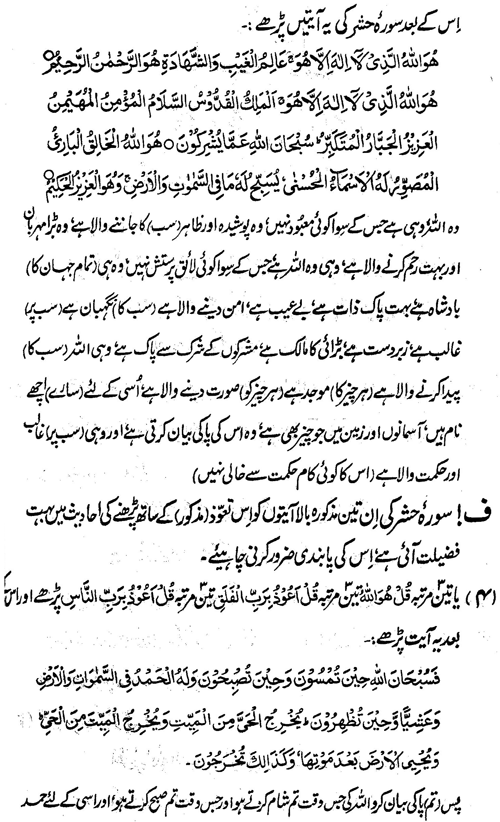 اِس کے بعد سورۂ حشر کی یہ آیتیں پڑھے :۔
هُوَ اللهُ الَّذِیْ لَآ اِلٰهَ اِلَّا هُوَ ۚ عَالِمُ الْغَیْبِ وَالشَّهَادَةِ هُوَ الرَّحْمٰنُ الرَّحِیْمُ ○
هُوَ اللهُ الَّذِیْ لَآ اِلٰهَ اِلَّا هُوَ ۚ اَلْمَلِكُ الْقُدُّوْسُ السَّلَامُ الْمُؤْمِنُ الْمُهَیْمِنُ
الْعَزِیْزُ الْجَبَّارُ الْمُتَكَبِّرُ ؕ سُبْحَانَ اللهِ عَمَّا یُشْرِكُوْنَ ○ هُوَ اللهُ الْخَالِقُ الْبَارِئُ
الْمُصَوِّرُ لَهُ الْاَسْمَآءُ الْحُسْنٰی ؕ یُسَبِّحُ لَهٗ مَا فِی السَّمٰوٰتِ وَالْاَرْضِ ۚ وَهُوَ الْعَزِیْزُ الْحَكِیْمُ ○
وہ اللہ وہی ہے جس کے سوا کوئی معبود نہیں، وہ پوشیدہ اور ظاہر (سب) کا جاننے والا ہے، وہ بڑا مہربان
اور بہت رحم کرنے والا ہے، وہی وہ اللہ ہے جس کے سوا کوئی لائقِ پرستش نہیں، وہ ہی (تمام جہان کا)
بادشاہ ہے، بہت پاک ذات ہے، بے عیب ہے، امن دینے والا ہے (سب کا) نگہبان ہے (سب پر)
غالب ہے، زبردست ہے، بڑائی کا مالک ہے، مشرکوں کے شرک سے پاک ہے، وہی اللہ (سب کا)
پیدا کرنے والا ہے (ہر چیز کا) موجد ہے (ہر چیز کو) صورت دینے والا ہے، اُسی کے لئے (سارے) اچھے
نام ہیں، آسمانوں اور زمین میں جو چیز بھی ہے، وہ اس کی پاکی بیان کرتی ہے، اور وہی (سب پر) غالب
اور حکمت والا ہے (اس کا کوئی کام حکمت سے خالی نہیں)
ف! سورۂ حشر کی اِن تین مذکورہ بالا آیتوں کو اِس تعوّذ (مذکور) کے ساتھ پڑھنے کی احادیث میں بہت
فضیلت آئی ہے، اِس کی پابندی ضرور کرنی چاہیئے۔
(۴) یا تین ۳ مرتبہ قُلْ هُوَ اللهُ تین ۳ مرتبہ قُلْ اَعُوْذُ بِرَبِّ الْفَلَقِ تین ۳ مرتبہ قُلْ اَعُوْذُ بِرَبِّ النَّاسِ پڑھے اور اس کے
بعد یہ آیت پڑھے :۔
فَسُبْحَانَ اللهِ حِیْنَ تُمْسُوْنَ وَحِیْنَ تُصْبِحُوْنَ وَلَهُ الْحَمْدُ فِی السَّمٰوَاتِ وَالْاَرْضِ
وَعَشِیًّا وَّحِیْنَ تُظْهِرُوْنَ ؕ یُخْرِجُ الْحَیَّ مِنَ الْمَیِّتِ وَیُخْرِجُ الْمَیِّتَ مِنَ الْحَیِّ
وَیُحْیِی الْاَرْضَ بَعْدَ مَوْتِهَا ؕ وَكَذَالِكَ تُخْرَجُوْنَ ۔
پس (تم) پاکی بیان کرو اللہ کی جس وقت تم شام کرتے ہو اور جس وقت تم صبح کرتے ہو، اور اسی کے لئے حمد